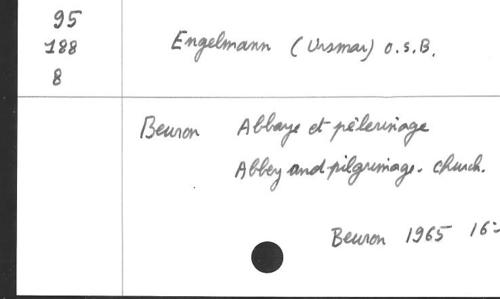 95
188
8
Engelmann (Ursmar) o.s.B.
Beuron Abbaye et pèlerinage
Abbey and pilgrimage. church.
Beuron 1965 16°